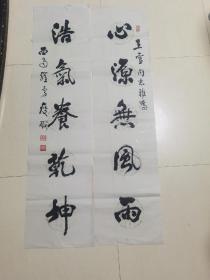 王雪同志雅嘱
心源無風雨
浩氣養乾坤